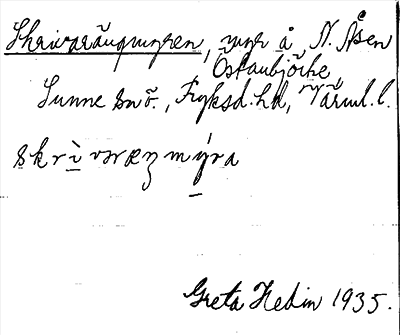 Skrivarängmyren, myr å, N. Åsen
Östanbjörke
Sunne snö., Fryksd. hd, Värml. l.
skrìvaræŋmýra
Greta Hedin 1935.